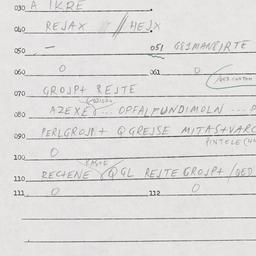 030 A IKRE
040 REJAX // HEJX
050 — 051 GEIMANEIRTE
060 O 061 O
070 GROJP+ REJTE
080 AZEXE ... OPFALFUNDIMOLN ...
090 PERLGROJP+ QGREJSE MITAS+VARC
PINTELE
100 O
110 RECTENE QGL REJTE GROJP+ / GED
111 O 112 O